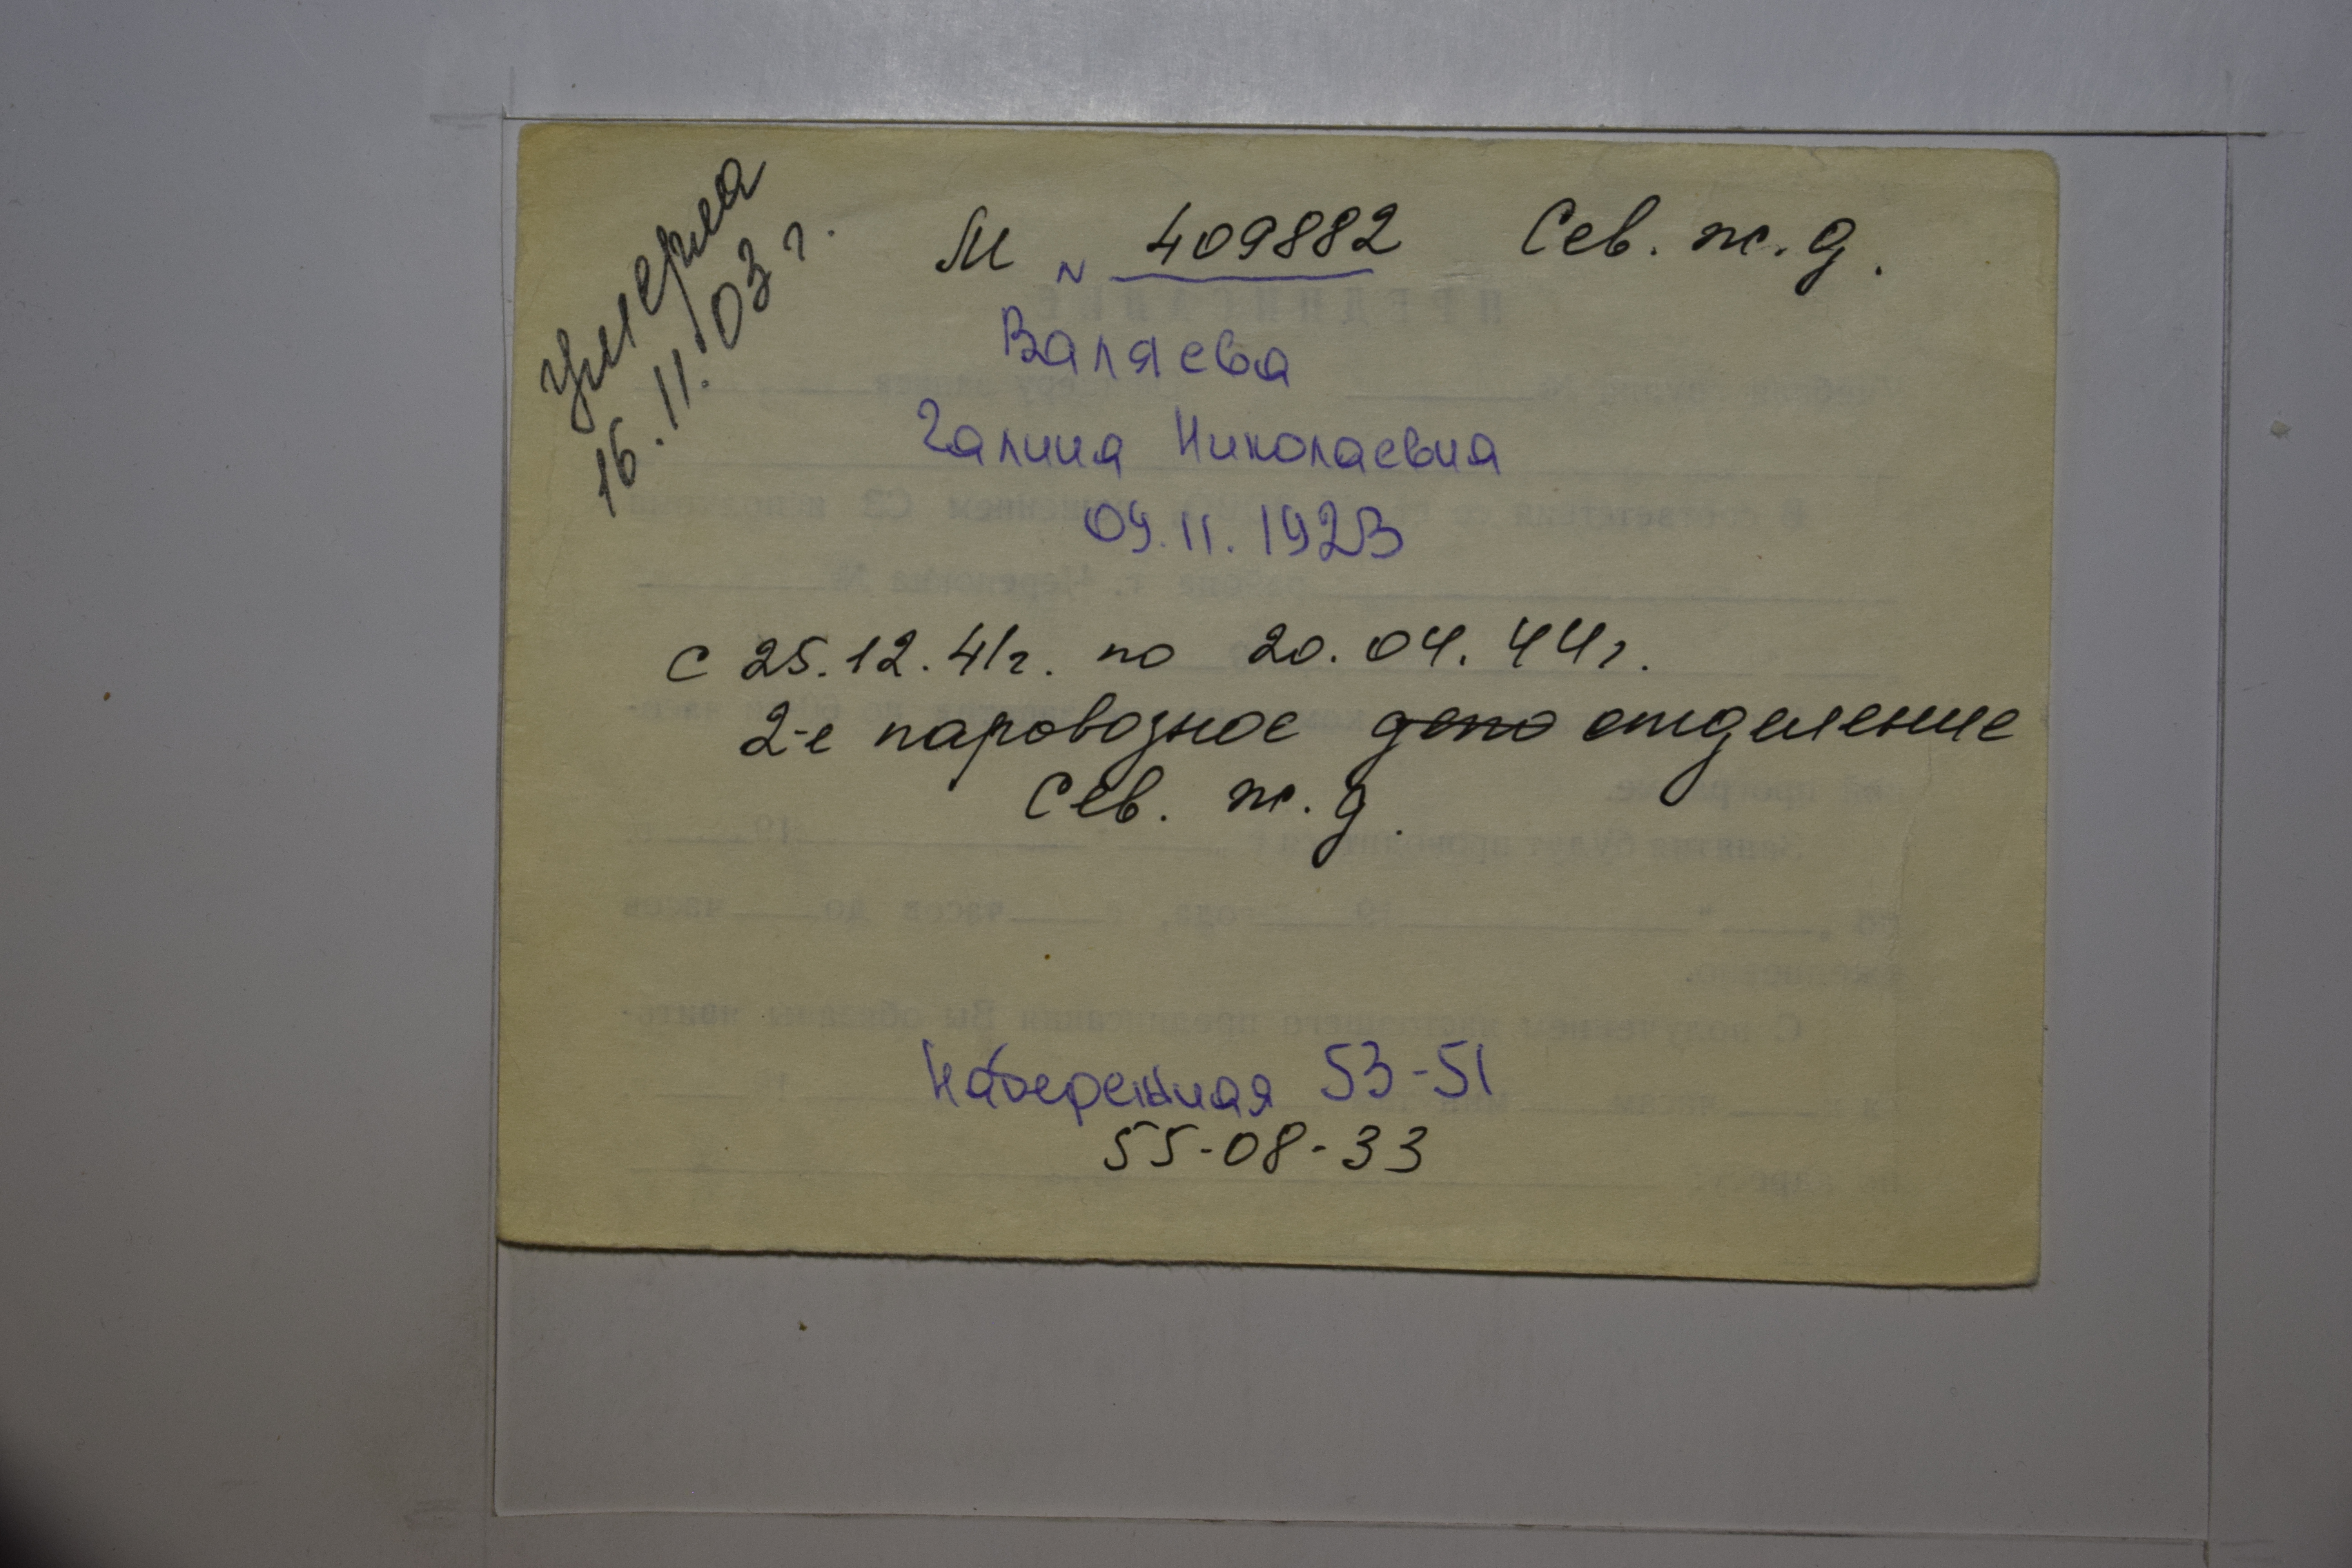 умерла
16.11.03 г.
М N 409882 Сев. ж.д.
Валяева
Галина Николаевна
09.11.1923
с 25.12.41г. по 20.04.44г.
2-е паровозное депо отделение
Сев. ж.д.
Набережная 53-51
55-08-33